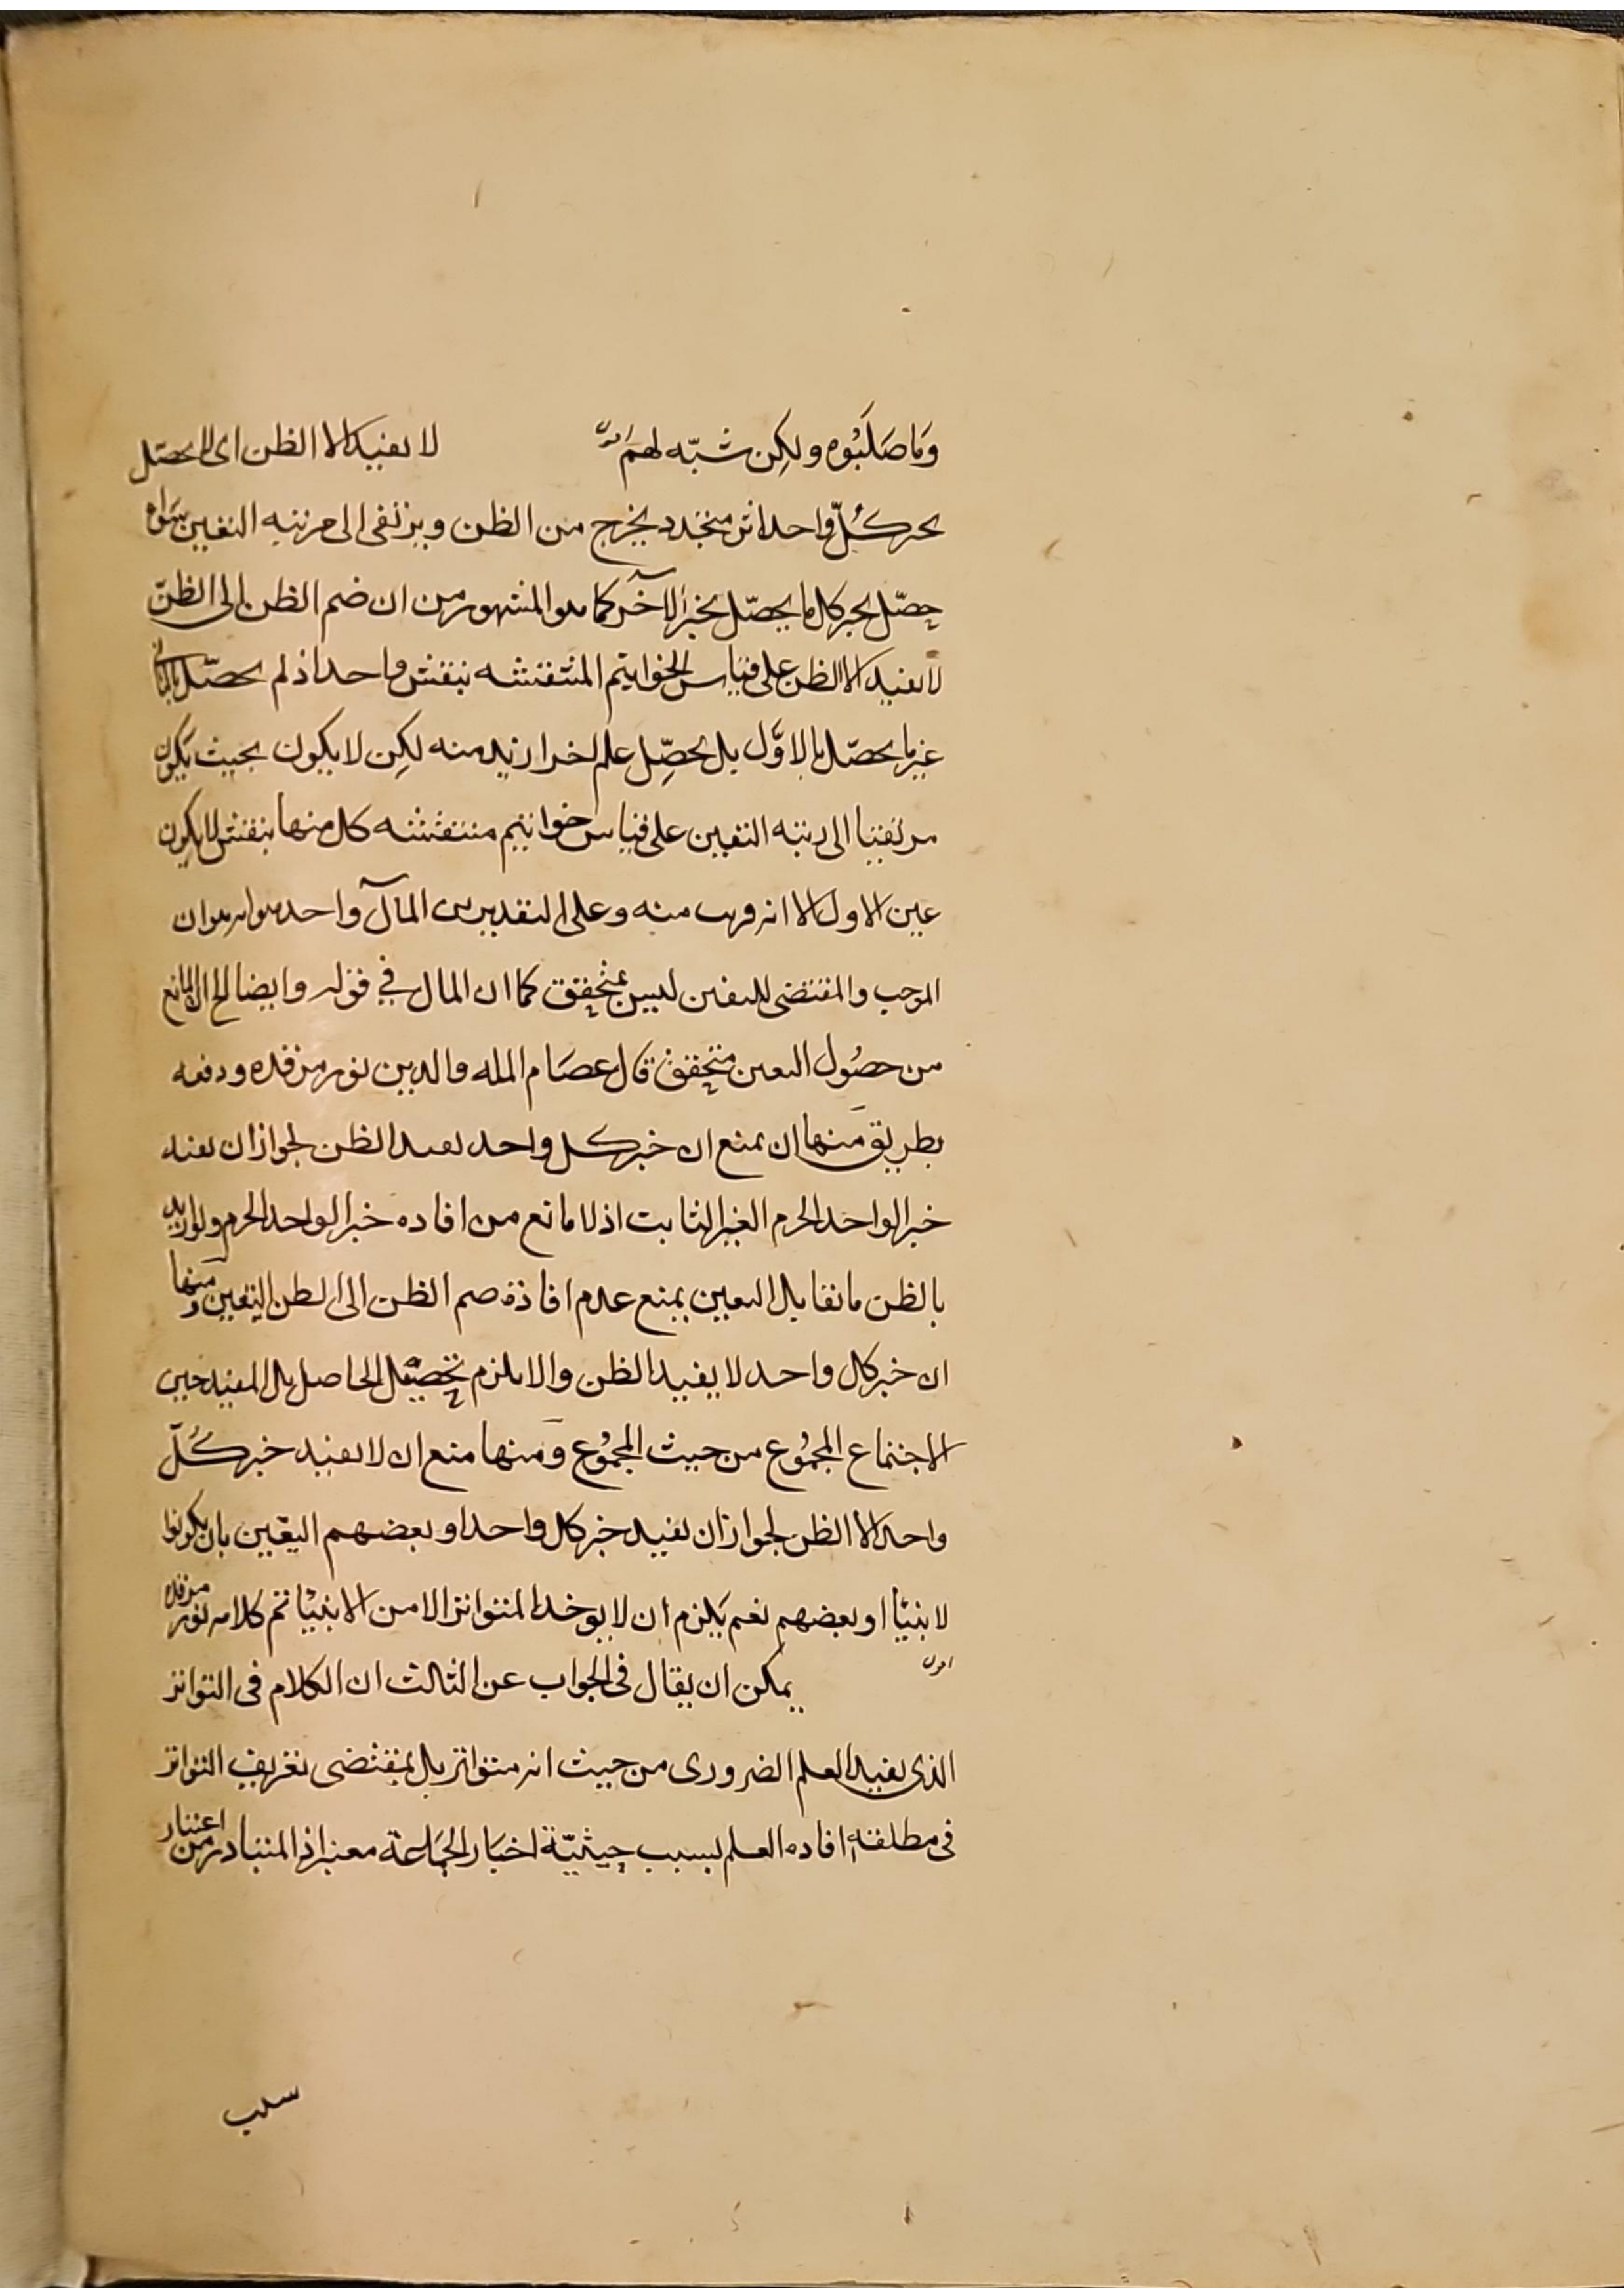 وَمَا صَلَبُوه ولٰكِن شبّه لهم لا يفيد الا الظن اى لا يحصّل
بخبر كلّ واحد اثر متجدد يخرج من الظن ويرتقى الى مرتبه اليقين سَواء
حصّل بخبر كل ما يحصّل بخبر الآخر كما هو المشهور من ان ضم الظن الى الظنّ
لا يفيد الا الظن على قياس الخواتيم المنتقشه بنقش واحد اذ لم يحصّل بالثانى
غير ما يحصّل بالاوّل بل يحصّل علم اخر ازيد منه لكِن لا يكون بحيث يَكون
مرتقيا الى رتبه اليقين على قياس خواتيم منتقشه كل منها بنقش لا يكون
عين الاول الا انه قريب منه وعلى التقديرين المآل واحد هو ان
الموجب والمقتضى لليقين ليس بمتحقق كما ان المال في قوله وايضا الخ ان المانع
من حصُول اليقين متحقق قال عصَام المله والدين نور مرقده ودفعه
بطريق منها ان يمنع ان خبر كل واحد يفيد الظن لجواز ان يفيد
خبر الواحد الجزم الغير الثابت اذ لا مانع من افاده خبر الواحد الجزم ولو اريد
بالظن ما يقابل اليقين يمنع عدم افادة ضم الظن الى الظن اليقين ومنها
ان خبر كل واحد لا يفيد الظن والا يلزم تحصيل الحاصل بل المفيد حين
الاجتماع المجمُوع من حيث المجمُوع ومنها منع ان لا يفيد خبر كُلّ
واحد الا الظن لجواز ان يفيد خبر كل واحد او بعضهم اليقين بان يكونوا
لانبيا او بعضهم نعم يَلزم ان لا يوخد المتواتر الا من الانبيا تم كلامه نور مرقده
يمكن ان يقال فى الجواب عن الثالث ان الكلام فى التواتر
الذى يفيد العلم الضرورى من حيث انه متواتر بل بمقتضى تعريف التواتر
فى مطلقه افاده العلم بسبب حيثيّة اخبَار الجَماعة معتبر اذ المتبادر من اعتبار
سبب